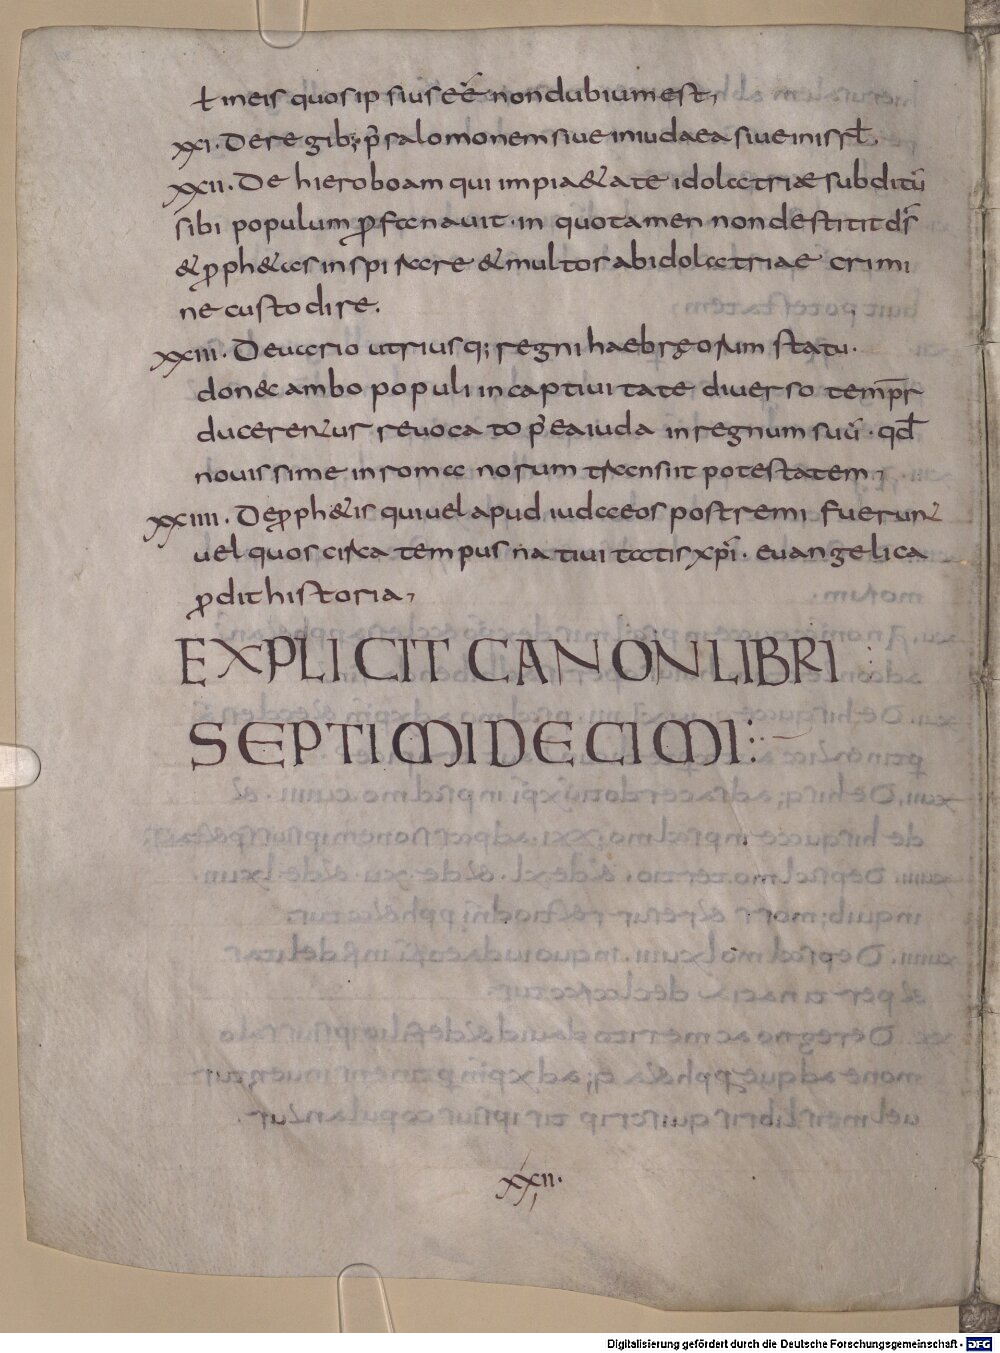 ł in eis quos ipsius eē non dubium est,
xxi. De regib; p̄ salomonem siue in iudaea siue in isrł.
xxii. De hieroboam qui impi&ate idolatriae subditū
sibi populum ꝓfanauit. in quo tamen non destitit dš
& ꝓph&as inspirare & multos ab idolatriae crimi
ne custodire.
xxiii. De uario utriusq; regni haebreorum statu.
donec ambo populi in captiuitate diuerso temp̄r
ducerentur reuocato p̄ ea iuda in regnum suū. qđ
nouissime in romanorum transiit potestatem,
xxiiii. De ꝓph&is qui uel apud iudaeos postremi fuerunt
uel quos circa tempus natiuitatis xp̄i. euangelica
ꝓdit historia,
EXPLICIT CANON LIBRI
SEPTIMI DECIMI:
xxii.
Digitalisierung gefördert durch die Deutsche Forschungsgemeinschaft - DFG